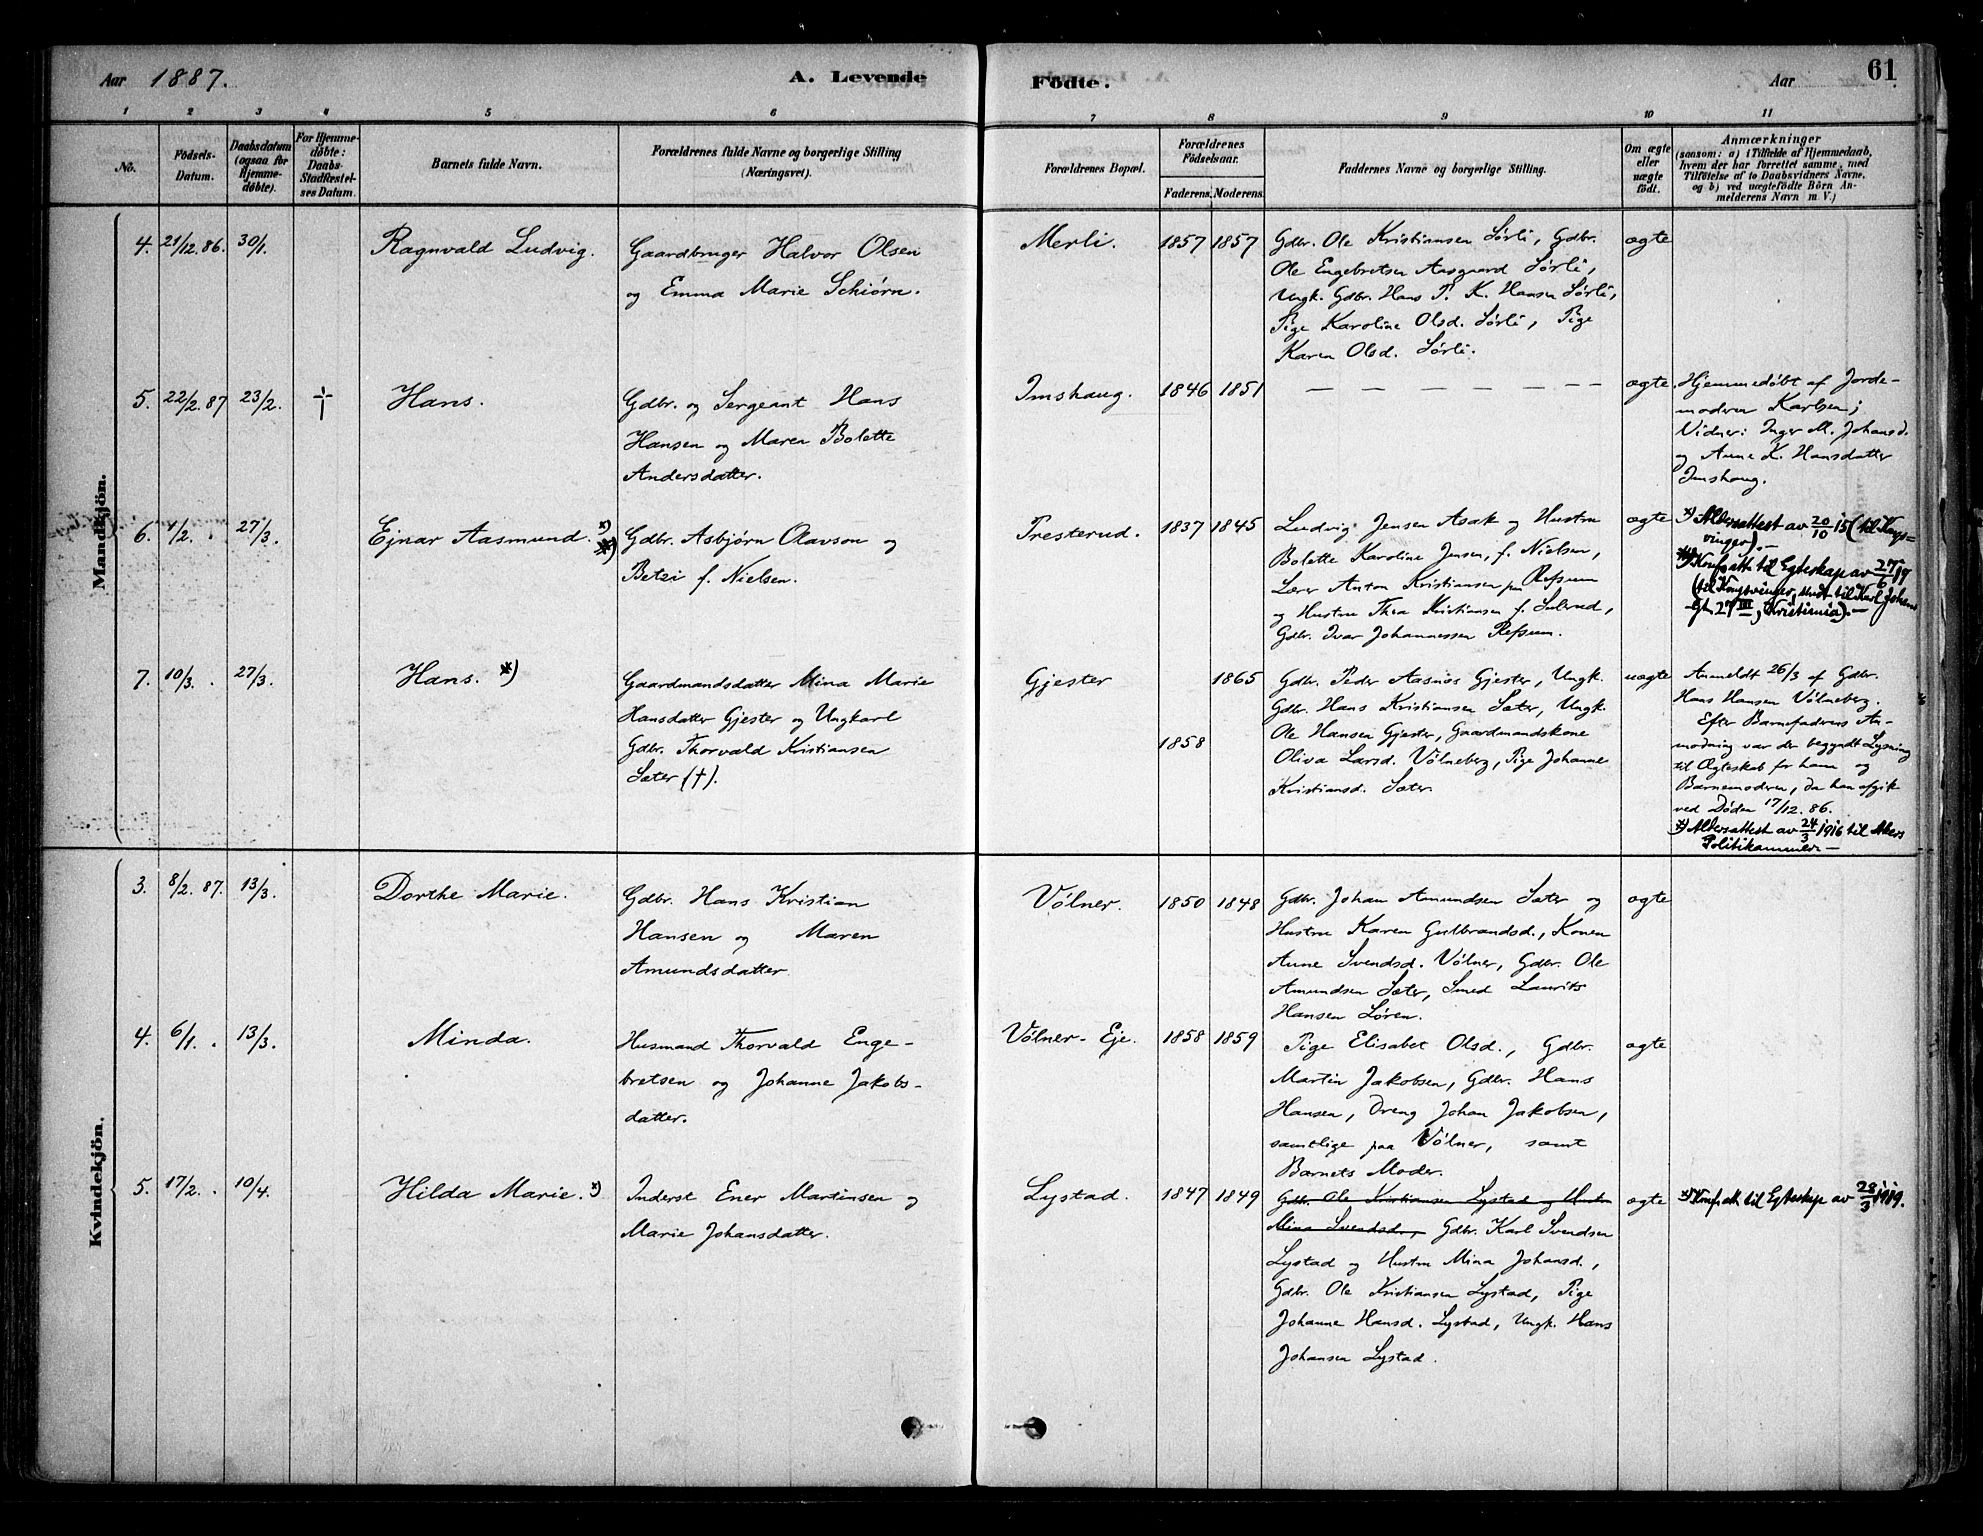 Aar 1887. A. Levende Födte. Aar 61
1 2 3 4 5 6 7 8 9 10 11
No. Födsels-Datum. Daabsdatum (ogsaa for Hjemmedöbte). For Hjemmedöbte: Daabs-Stadfæstelses Datum. Barnets fulde Navn. Forældrenes fulde Navne og borgerlige Stilling (Næringsvei). Forældrenes Bopæl. Forældrenes Födselsaar. Faderens. Moderens. Faddernes Navne og borgerlige Stilling. Om ægte eller uægte födt. Anmærkninger (saasom: a) i Tilfælde af Hjemmedaab, hvem der har forrettet samme, med Tilföielse af to Daabsvidners Navne, og b) ved uægtefödte Börn Anmelderens Navn m. V.)
Mandkjön.
4. 21/12. 86. 30/1. Ragnvald Ludvig. Gaardbruger Halvor Olsen
og Emma Marie Schiørn.
Merli. 1857 1857 Gdbr. Ole Kristiansen Sørli, Gdbr.
Ole Engebretsen Aasgaard Sørli,
Ungk. Gdbr. Hans P. K. Hansen Sørli,
Pige Karoline Olsd. Sørli, Pige
Karen Olsd. Sørli.
ægte
5. 22/2. 87 23/2. † Hans. Gdbr. og Sergeant Hans
Hansen og Maren Bolette
Andersdatter.
Imshaug. 1846 1851 — — — — — — —
ægte. Hjemmedøbt af Jorde-
moderen Karlsen;
Vidner: Inger M. Johansd.
og Anne K. Hansdatter
Imshaug.
6. 4/2. 27/3. Ejnar Aasmund. x) xx) Gdbr. Asbjørn Olavson og
Betzi f. Nielsen.
Presterud. 1837 1845 Ludvig Jensen Asak og Hustru
Bolette Karoline Jensen, f. Nielsen,
Lærer Anton Kristiansen paa Refsum
og Hustru Thea Kristiansen f. Sulerud,
Gdbr. Ivar Johannessen Refsum.
ægte x) Aldersattest av 20/10 15 (til Kongs=
vinger).—
xx) Konf. att. til Egteskap av 27/6 19
(til Kongsvinger, sendt til Karl Johans
Gt. 27 III, Kristiania).—
7. 10/3. 27/3. Hans. x) Gaardmandsdatter Mina Marie
Hansdatter Gjester og Ungkarl
Gdbr. Thorvald Kristiansen
Sæter (†).
Gjester 1865
1858
Gdbr. Peder Aasnes Gjester, Ungk.
Gdbr. Hans Kristiansen Sæter, Ungk.
Ole Hansen Gjester, Gaardmandskone
Oliva Larsd. Vølneberg, Pige Johanne
Kristiansd. Sæter.
uægte Anmeldt 26/3 af Gdbr.
Hans Hansen Vølneberg.
Efter Barnefaderens An-
modning var der begyndt Lysning
til Ægteskab for ham og
Barnemoderen, da han afgik
ved Døden 17/12. 86.
x) Aldersattest av 24/3 1916 til Akers
Politikammer—
Kvindekjön.
3. 8/2. 87. 13/3. Dorthe Marie. Gdbr. Hans Kristian
Hansen og Maren
Amundsdatter.
Vølner. 1850 1848 Gdbr. Johan Amundsen Sæter og
Hustru Karen Gulbrandsd., Konen
Anne Svendsd. Vølner, Gdbr. Ole
Amundsen Sæter, Smed Laurits
Hansen Løren.
ægte
4. 6/1. 13/3. Minda. Husmand Thorvald Enge-
bretsen og Johanne Jakobs-
datter.
Vølner-Eje. 1858 1859 Pige Elisabet Olsd., Gdbr.
Martin Jakobsen, Gdbr. Hans
Hansen, Dreng Johan Jakobsen,
samtlige paa Vølner, samt
Barnets Moder.
ægte
5. 17/2. 10/4. Hilda Marie. x) Inderst Ener Martinsen og
Marie Johansdatter.
Lystad. 1847 1849 Gdbr. Ole Kristiansen Lystad og Hustru
Mina Svendsd., Gdbr. Karl Svendsen
Lystad og Hustru Mina Johansd.,
Gdbr. Ole Kristiansen Lystad, Pige
Johanne Hansd. Lystad, Ungk. Hans
Johansen Lystad.
ægte x) Konf. att. til Egteskap av 28/3 1919.